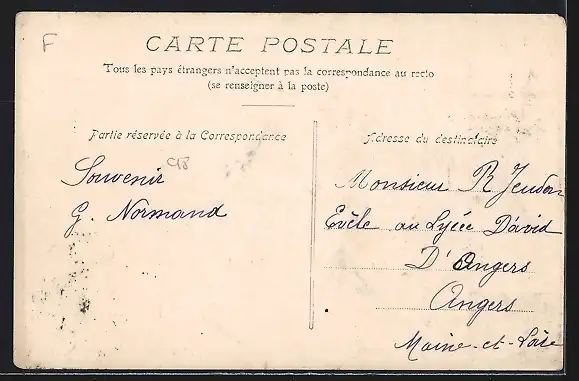 F
CARTE POSTALE
Tous les pays étrangers n'acceptent pas la correspondance au recto
(se renseigner à la poste)
Partie réservée à la Correspondance
Adresse du destinataire
Souvenir
G. Normand
Monsieur R Jeudon
Evéle au Lycée David
D'Angers
Angers
Maine-et-Loire